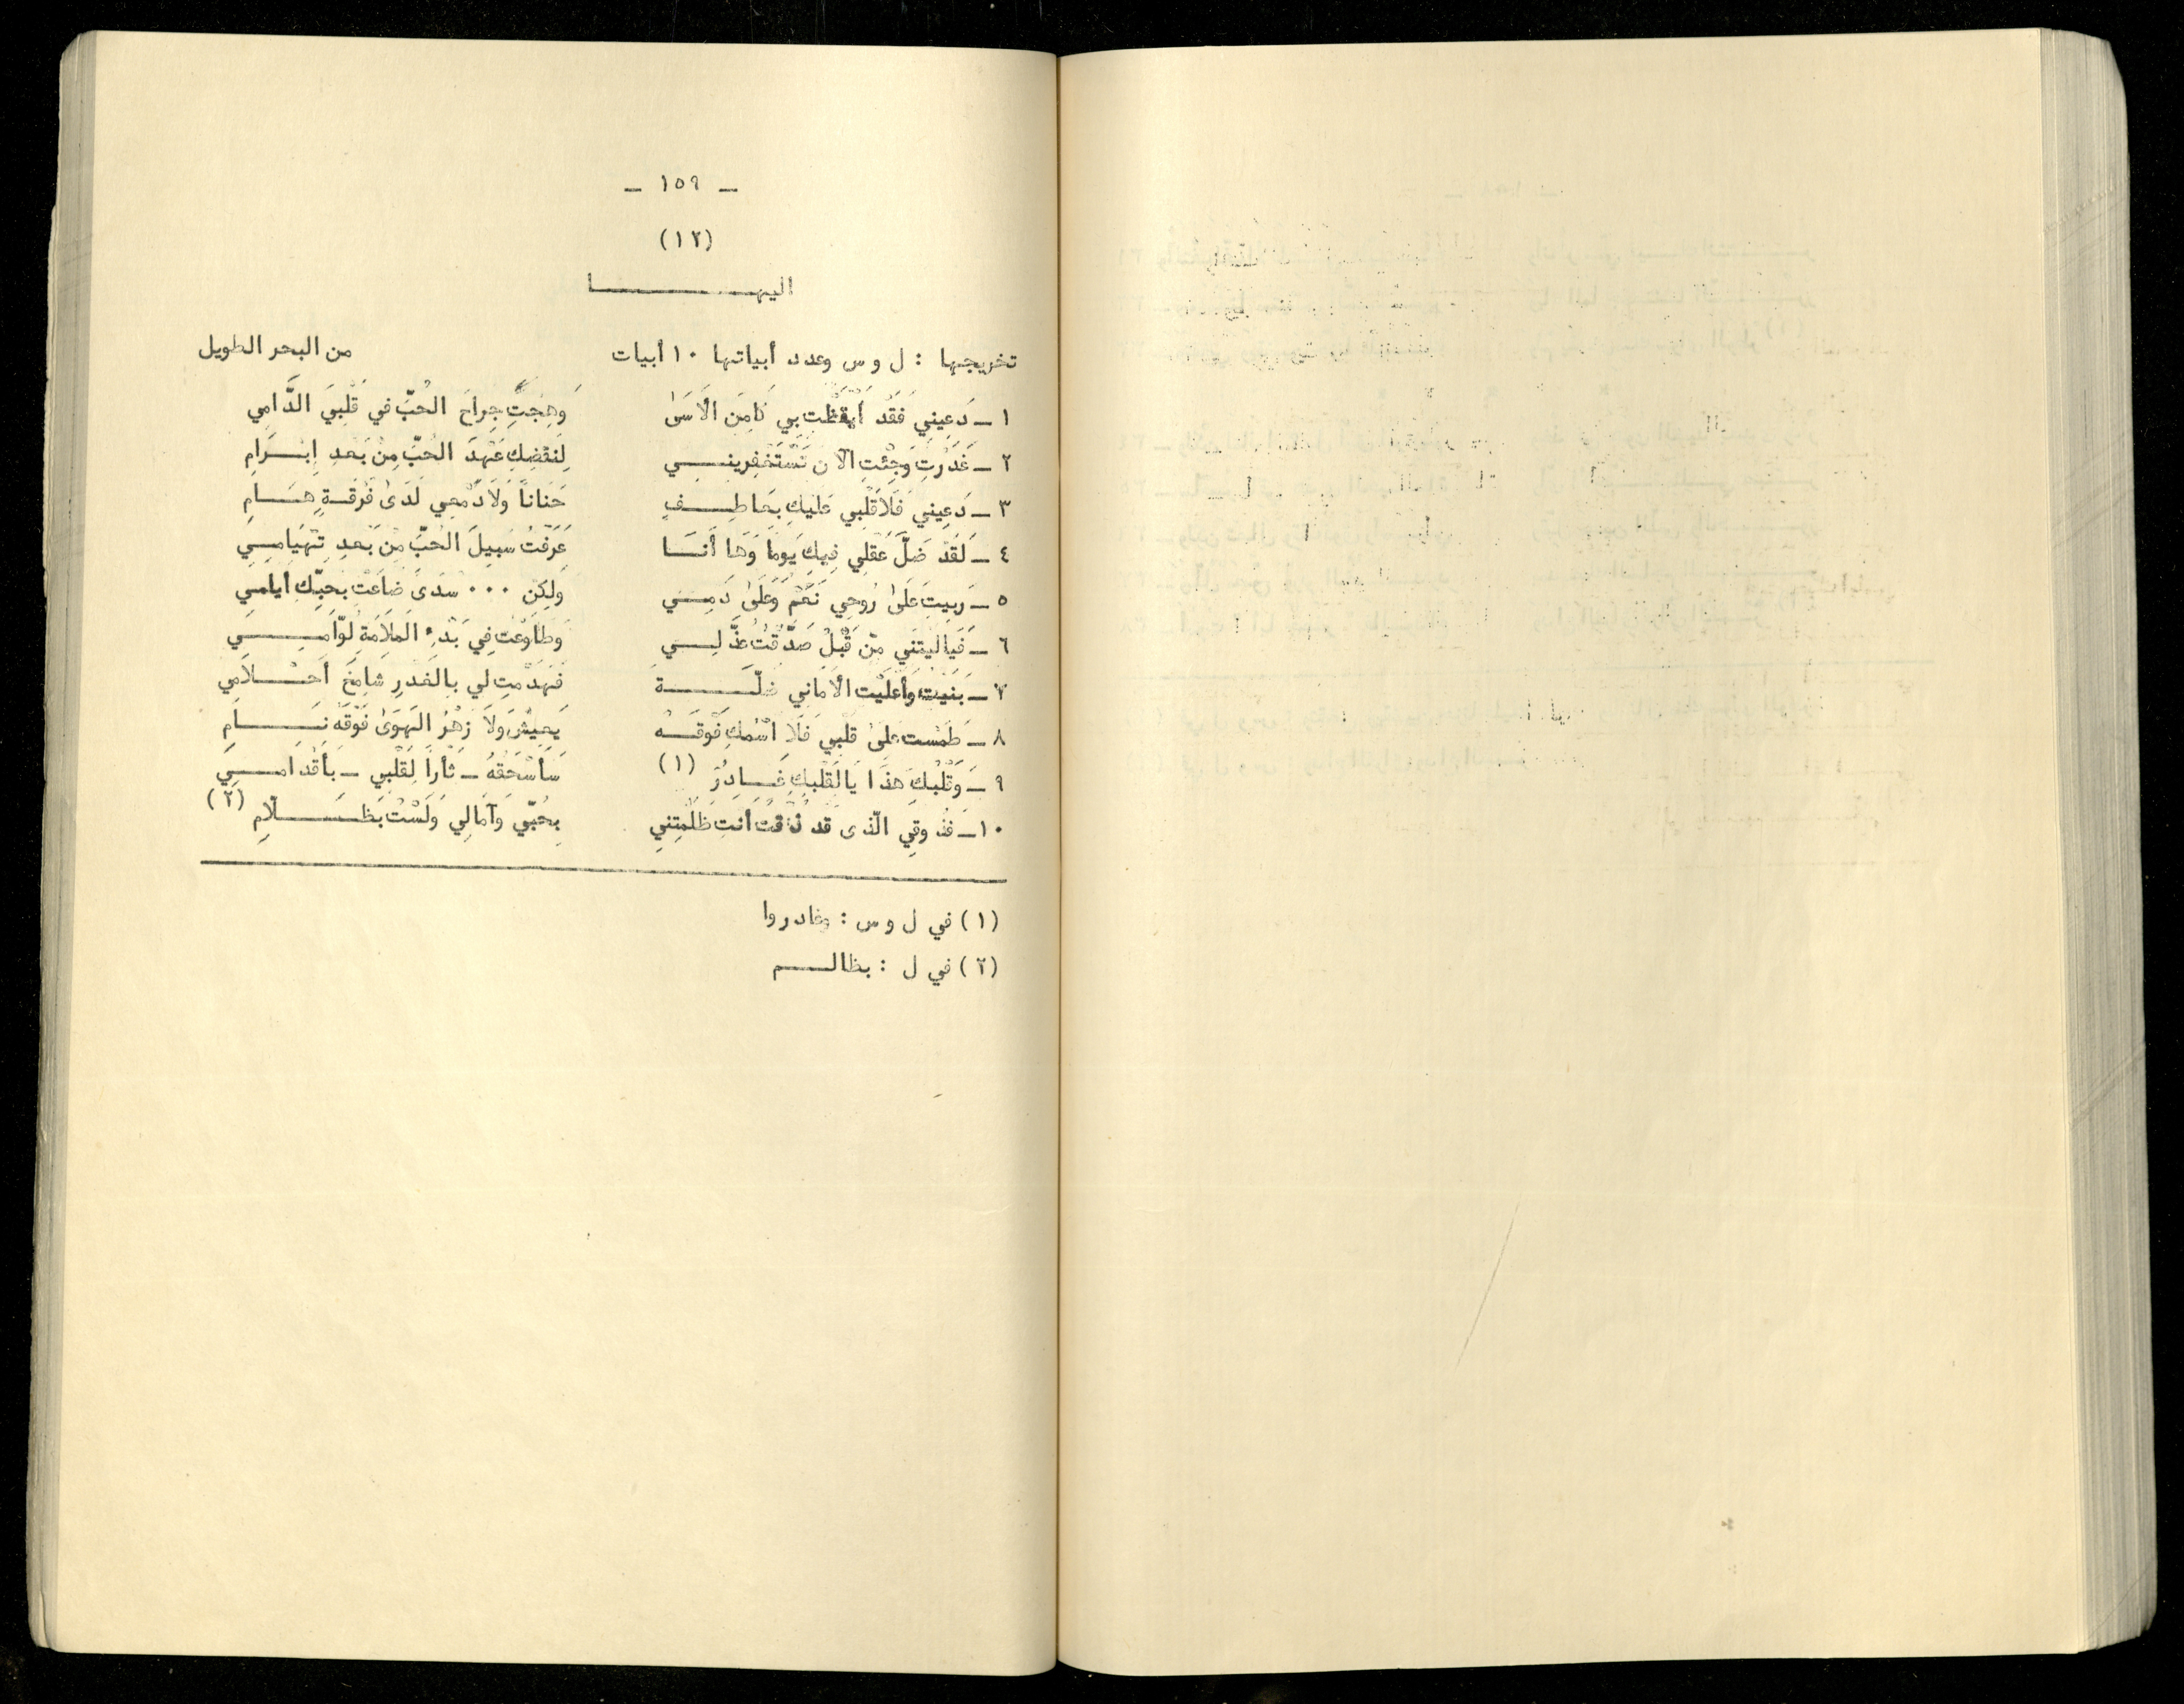 — ١٥٩ —
(١٢)
اليهـــــــــا
تخريجها : ل و س وعدد أبياتها ١٠ أبيات من البحر الطويل
١ ــ دَعِينِي فَقَد أيقظت بِي كَامِنَ الأَسَىٰ وَهِجْتِ جِراحَ الحُبّ في قَلْبِيَ الدَّامِي
٢ ــ غَدَرْتِ وَجِئْتِ الآن تَسْتَغْفِرينـــي لِنَقْضِكِ عَهْدَ الحُبّ مِنْ بَعْدِ إبــرَامِ
٣ ــ دَعِينِي فَلاَ قَلْبِي عَلَيْكِ بِعَاطِــفٍ حَنَاناً وَلاَ دَمْعِي لَدَىٰ فُرقَــةٍ هــامِ
٤ ــ لَقَدْ ضَلَّ عَقْلِي فِيكِ يَوماً وَهَا أنــا عَرَفْتُ سَبِيلَ الحُبّ مِنْ بَعْدِ تَهْيَامِــي
٥ ــ رَبِيتِ عَلَىٰ رُوحِي نَعَمْ وَعَلَىٰ دَمِــي وَلكِن ... سُدَىً ضَاعَتْ بِحُبّكِ أيامي
٦ ــ فَيَا ليتَنِي مِنْ قَبْلُ صَدَّقْتُ عُذَّلِــي وَطَاوَعْتُ فِي بَدْءِ المَلاَمَةِ لُوّامِــــي
٧ ــ بَنَيْتُ وَأَعْلَيْت الأَمَاني ضلّــــة فَهَدَّمْتِ لي بِالغَدْرِ شَامِخَ أَحْـــلاَمِي
٨ ــ طَمَسْتِ عَلىٰ قَلْبِي فَلاَ اسْمُكِ فَوْقَــهُ يَعِيشُ وَلاَ زَهْرُ الهَوَىٰ فَوْقَهُ نَـــامِ
٩ ــ وَقَلْبُكِ هذَا يَا لَقَلْبِكِ غَــادِرٌ (١) سَأَسْحَقهُ ــ ثأراً لِقَلْبِي ــ بأقْدامــي
١٠ ــ فذوقِي الّذى قد ذُقْتُ أنتِ ظَلَمْتِنِي بِحُبّي وَآمَالِي وَلَسْتُ بِظَـــــلّامِ (٢)
(١) في ل و س : وغادروا
(٢) في ل : بظالـــم